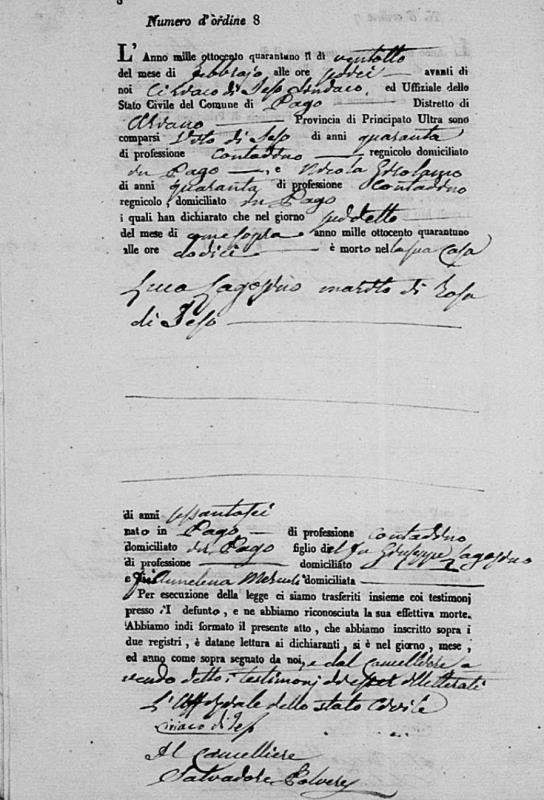 Numero d'òrdine 8
L' Anno mille ottocento quarantuno il dì ventotto
del mese di Febbrajo alle ore sedici avanti di
noi Ciriaco di Teso Sindaco, ed Uffiziale dello
Stato Civile del Comune di Pago Distretto di
Ariano Provincia di Principato Ultra sono
comparsi Vito di Teso di anni quaranta
di professione Contadino regnicolo domiciliato
in Pago e Nicola Girolamo
di anni quaranta di professione Contadino
regnicolo, domiciliato in Pago
i quali han dichiarato che nel giorno suddetto
del mese di come sopra anno mille ottocento quarantuno
alle ore dodici è morto nella sua Casa
Luca marito di Rosa
di Teso
di anni sessantasei
nato in Pago di professione contadino
domiciliato in Pago figlio del fu Giuseppe
di professione domiciliato
e fu domiciliata
Per esecuzione della legge ci siamo trasferiti insieme coi testimonj
presso 'l defunto, e ne abbiamo riconosciuta la sua effettiva morte.
Abbiamo indi formato il presente atto, che abbiamo inscritto sopra i
due registri, è datane lettura ai dichiaranti, si è nel giorno, mese,
ed anno come sopra segnato da noi, e dal Cancelliere a
vendo detto i testimonj di esser illetterati
L'Uffiziale dello stato Civile
Ciriaco di Teso
Il Cancelliere
Salvadore Polvere